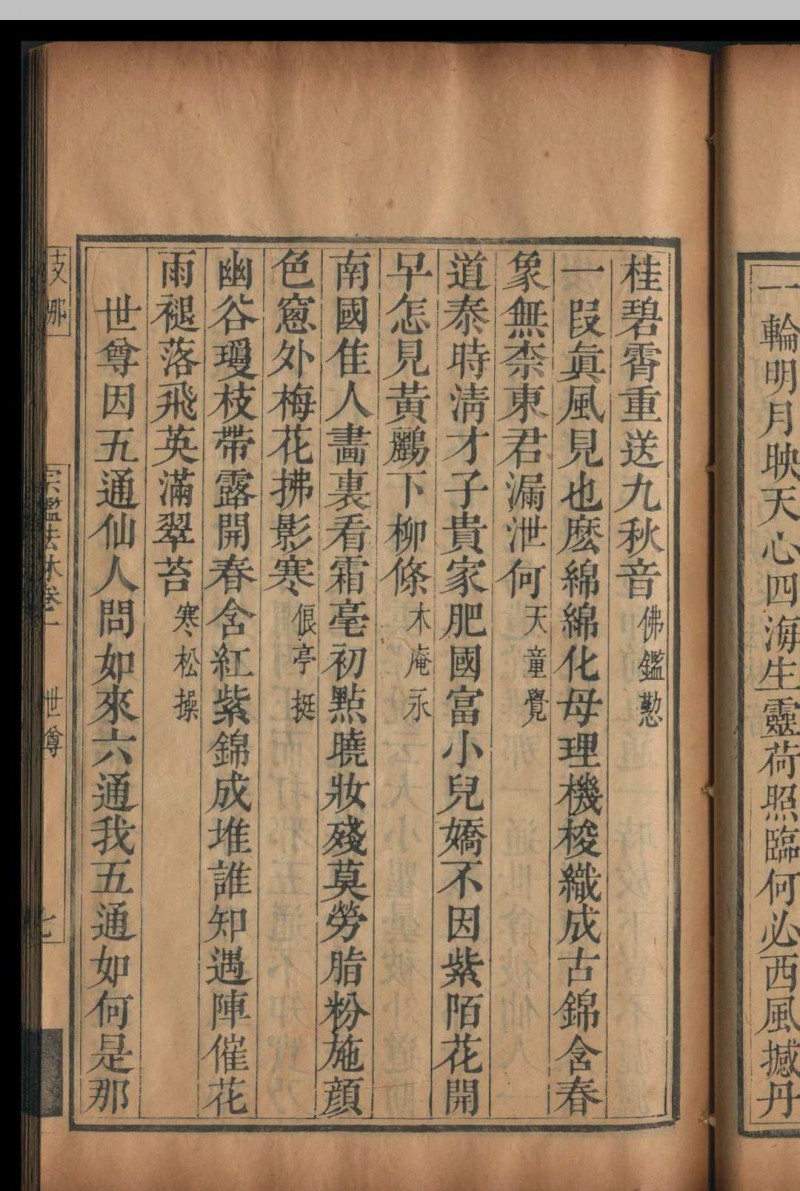 一輪明月映天心四海生靈荷照臨何必西風撼丹
桂碧霄重送九秋音佛鑑懃
一段眞風見也麽綿綿化母理機梭織成古錦含春
象無柰東君漏泄何天童覺
道泰時淸才子貴家肥國富小兒嬌不因紫陌花開
早怎見黃鸝下柳條木庵永
南國佳人畵裏看霜毫初點曉妝殘莫勞脂粉施顏
色窻外梅花拂影寒偍亭挺
幽谷瓊枝帶露開春含紅紫錦成堆誰知遇陣催花
雨褪落飛英滿翠苔寒松操
世尊因五通仙人問如來六通我五通如何是那
支那
宗鑑法林卷一
世尊
七